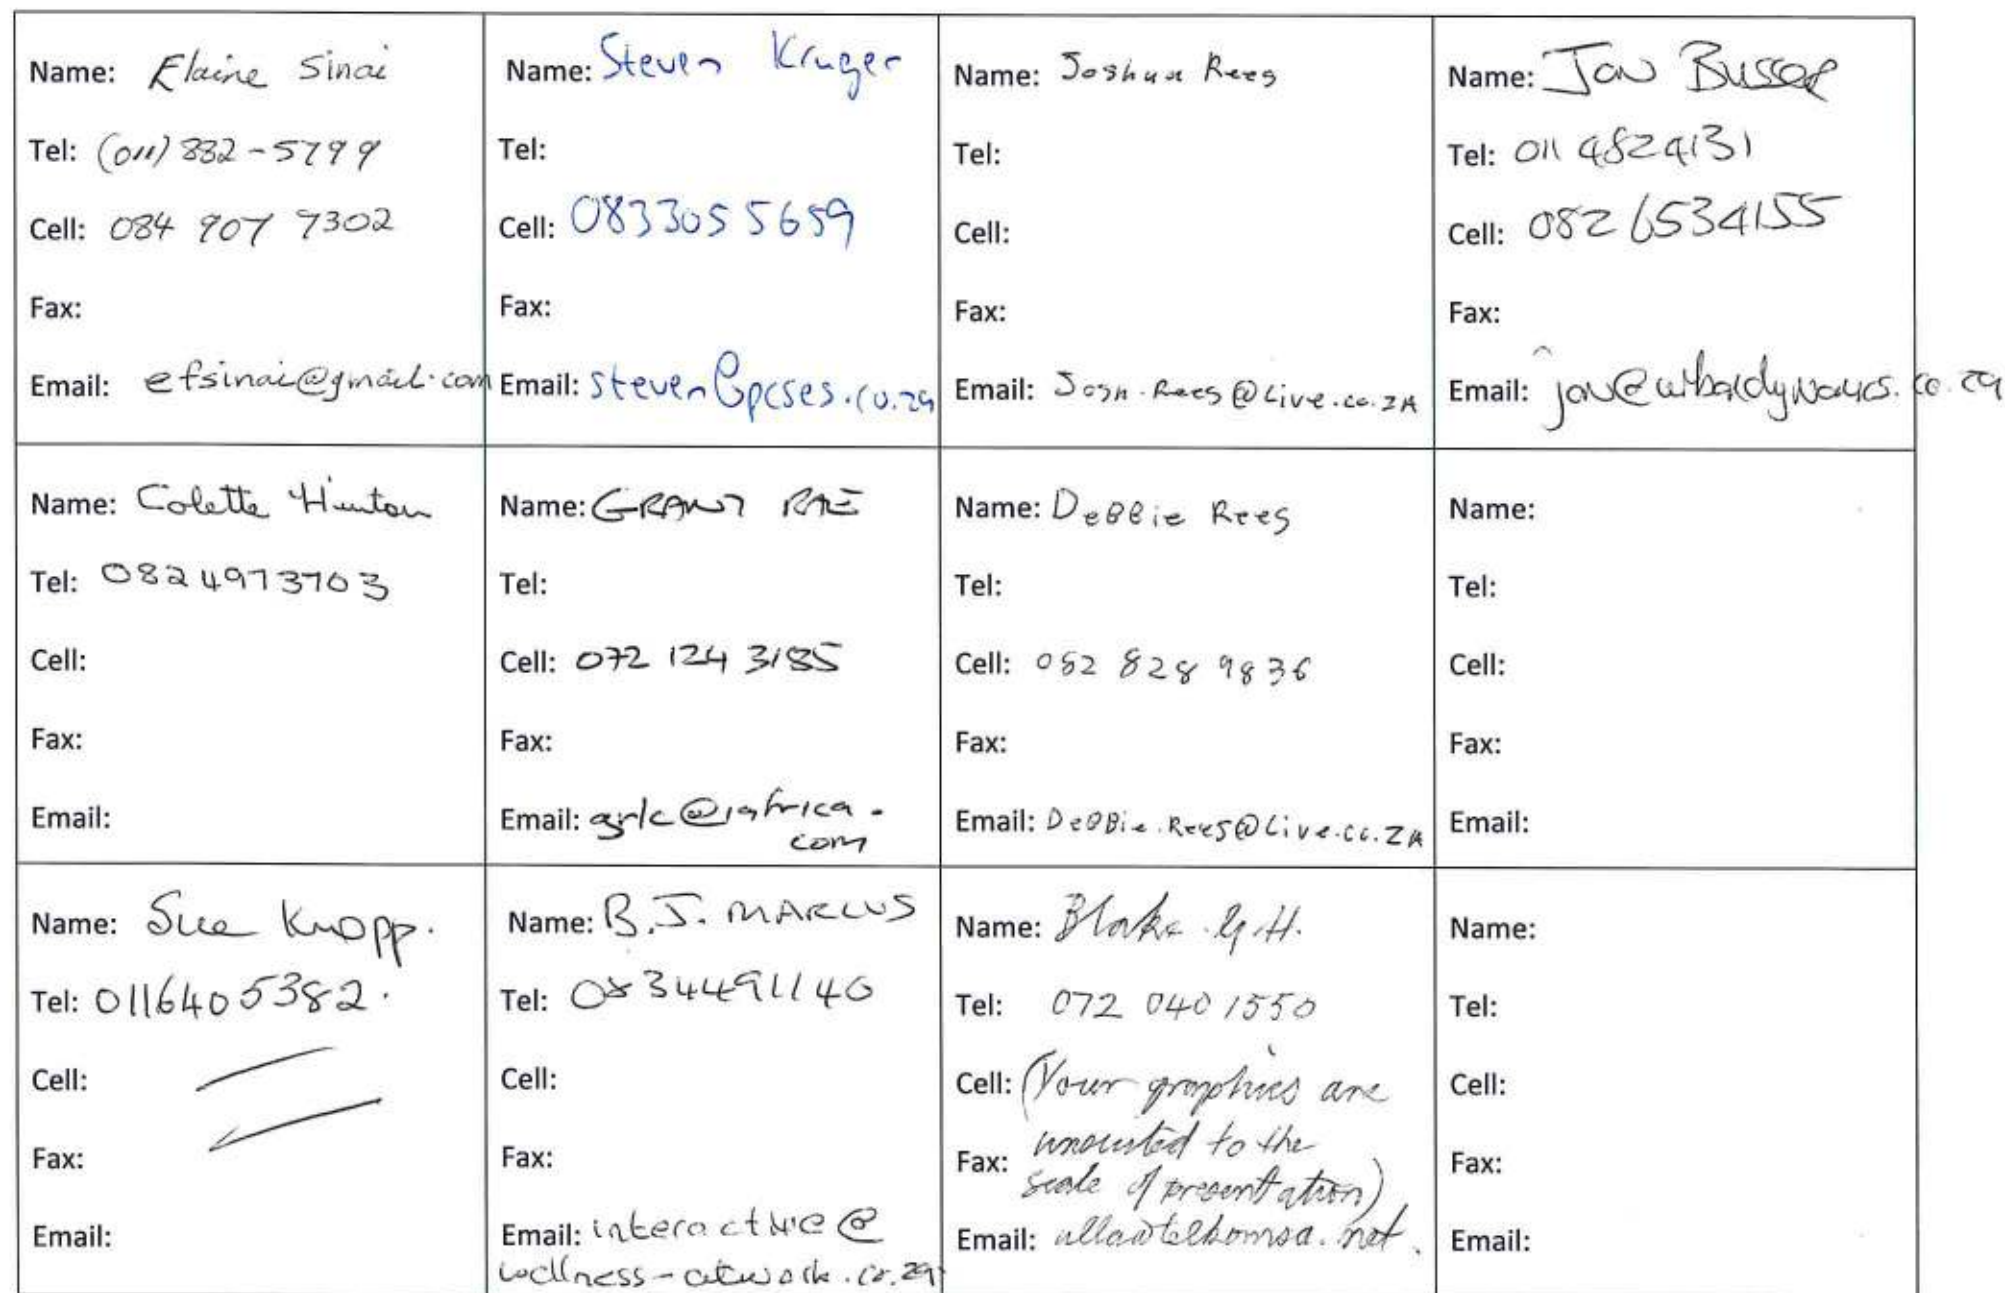 Name: Elaine Sinai
Tel: (011) 882-5799
Cell: 084 907 7302
Fax:
Email: efsinai@gmail.com
Name: Steven Kruger
Tel:
Cell: 0833055659
Fax:
Email: steven@pcses.co.za
Name: Joshua Rees
Tel:
Cell:
Fax:
Email: Josh.Rees@Live.co.ZA
Name: Jon Busser
Tel: 011 4824131
Cell: 082 6534155
Fax:
Email: jon@urbandynamics.co.za
Name: Colette Hinton
Tel: 0824973703
Cell:
Fax:
Email:
Name: GRANT RAE
Tel:
Cell: 072 124 3185
Fax:
Email: grlc@iafrica.
com
Name: Debbie Rees
Tel:
Cell: 082 828 9836
Fax:
Email: Debbie.Rees@Live.co.ZA
Name:
Tel:
Cell:
Fax:
Email:
Name: Sue Knopp.
Tel: 0116405382.
Cell:
Fax:
Email:
Name: B.J. MARCUS
Tel: 0834491140
Cell:
Fax:
Email: interactive@
wellness-atwork.co.za
Name: Blake G.H.
Tel: 072 040 1550
Cell: (Your graphics are
Fax: unsuited to the
scale of presentation)
Email: ulla@telkomsa.net.
Name:
Tel:
Cell:
Fax:
Email: